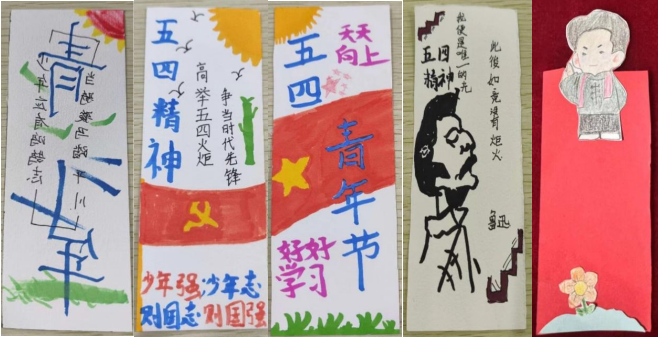 青少年
少年应有鸿鹄志
当骑骏马踏平三
五四精神
高举五四火炬
争当时代先锋
少年强,少年志
则国志则国强
五四
天天
向上
青年节
好好
学习
此後如竟没有炬火
我便是唯一的光
五四
精神
鲁迅